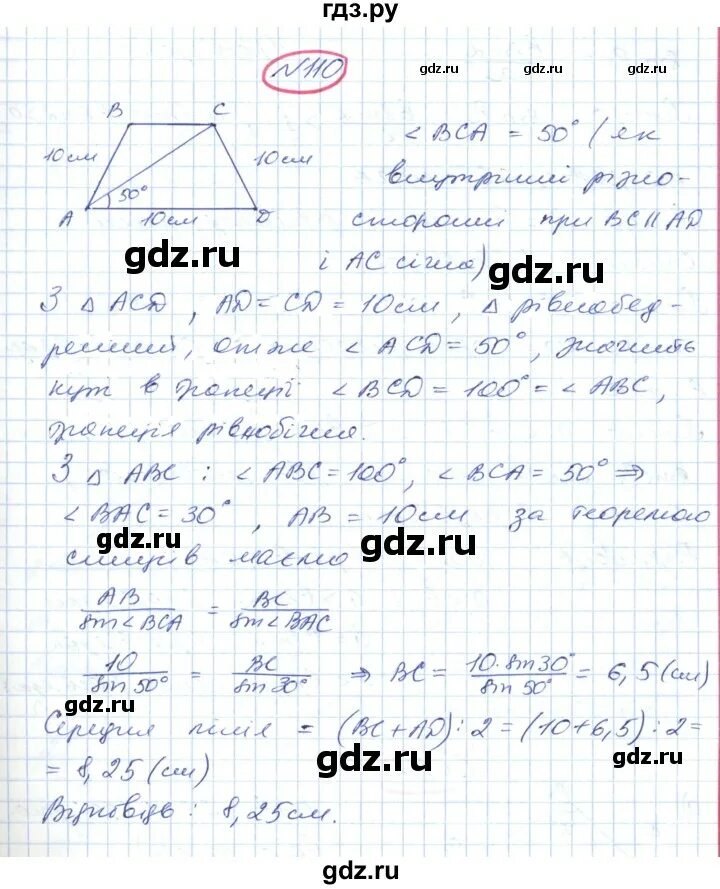 гдз.ру
N110
gdz.ru gdz.ru
B C
10 см 10 см
50°
A 10 см D
∠BCA = 50° (як
внутрішні різно-
сторонні при BC || AD
і AC січна)
gdz.ru gdz.ru
З △ ACD, AD = CD = 10 см, △ рівнобед-
рений, отже ∠ACD = 50°, значить
кут в трапеції ∠BCD = 100° = ∠ABC,
gdz.ru gdz.ru
трапеція рівнобічна.
З △ ABC : ∠ABC = 100°, ∠BCA = 50° ⇒
∠BAC = 30°, AB = 10 см за теоремою
gdz.ru gdz.ru
синусів маємо
AB / sin∠BCA = BC / sin∠BAC
10 / sin 50° = BC / sin 30° ⇒ BC = 10·sin30° / sin 50° = 6,5 (см)
gdz.ru gdz.ru
Середня лінія = (BC + AD) : 2 = (10 + 6,5) : 2 =
= 8,25 (см)
gdz.ru
Відповідь : 8,25 см.
gdz.ru
gdz.ru